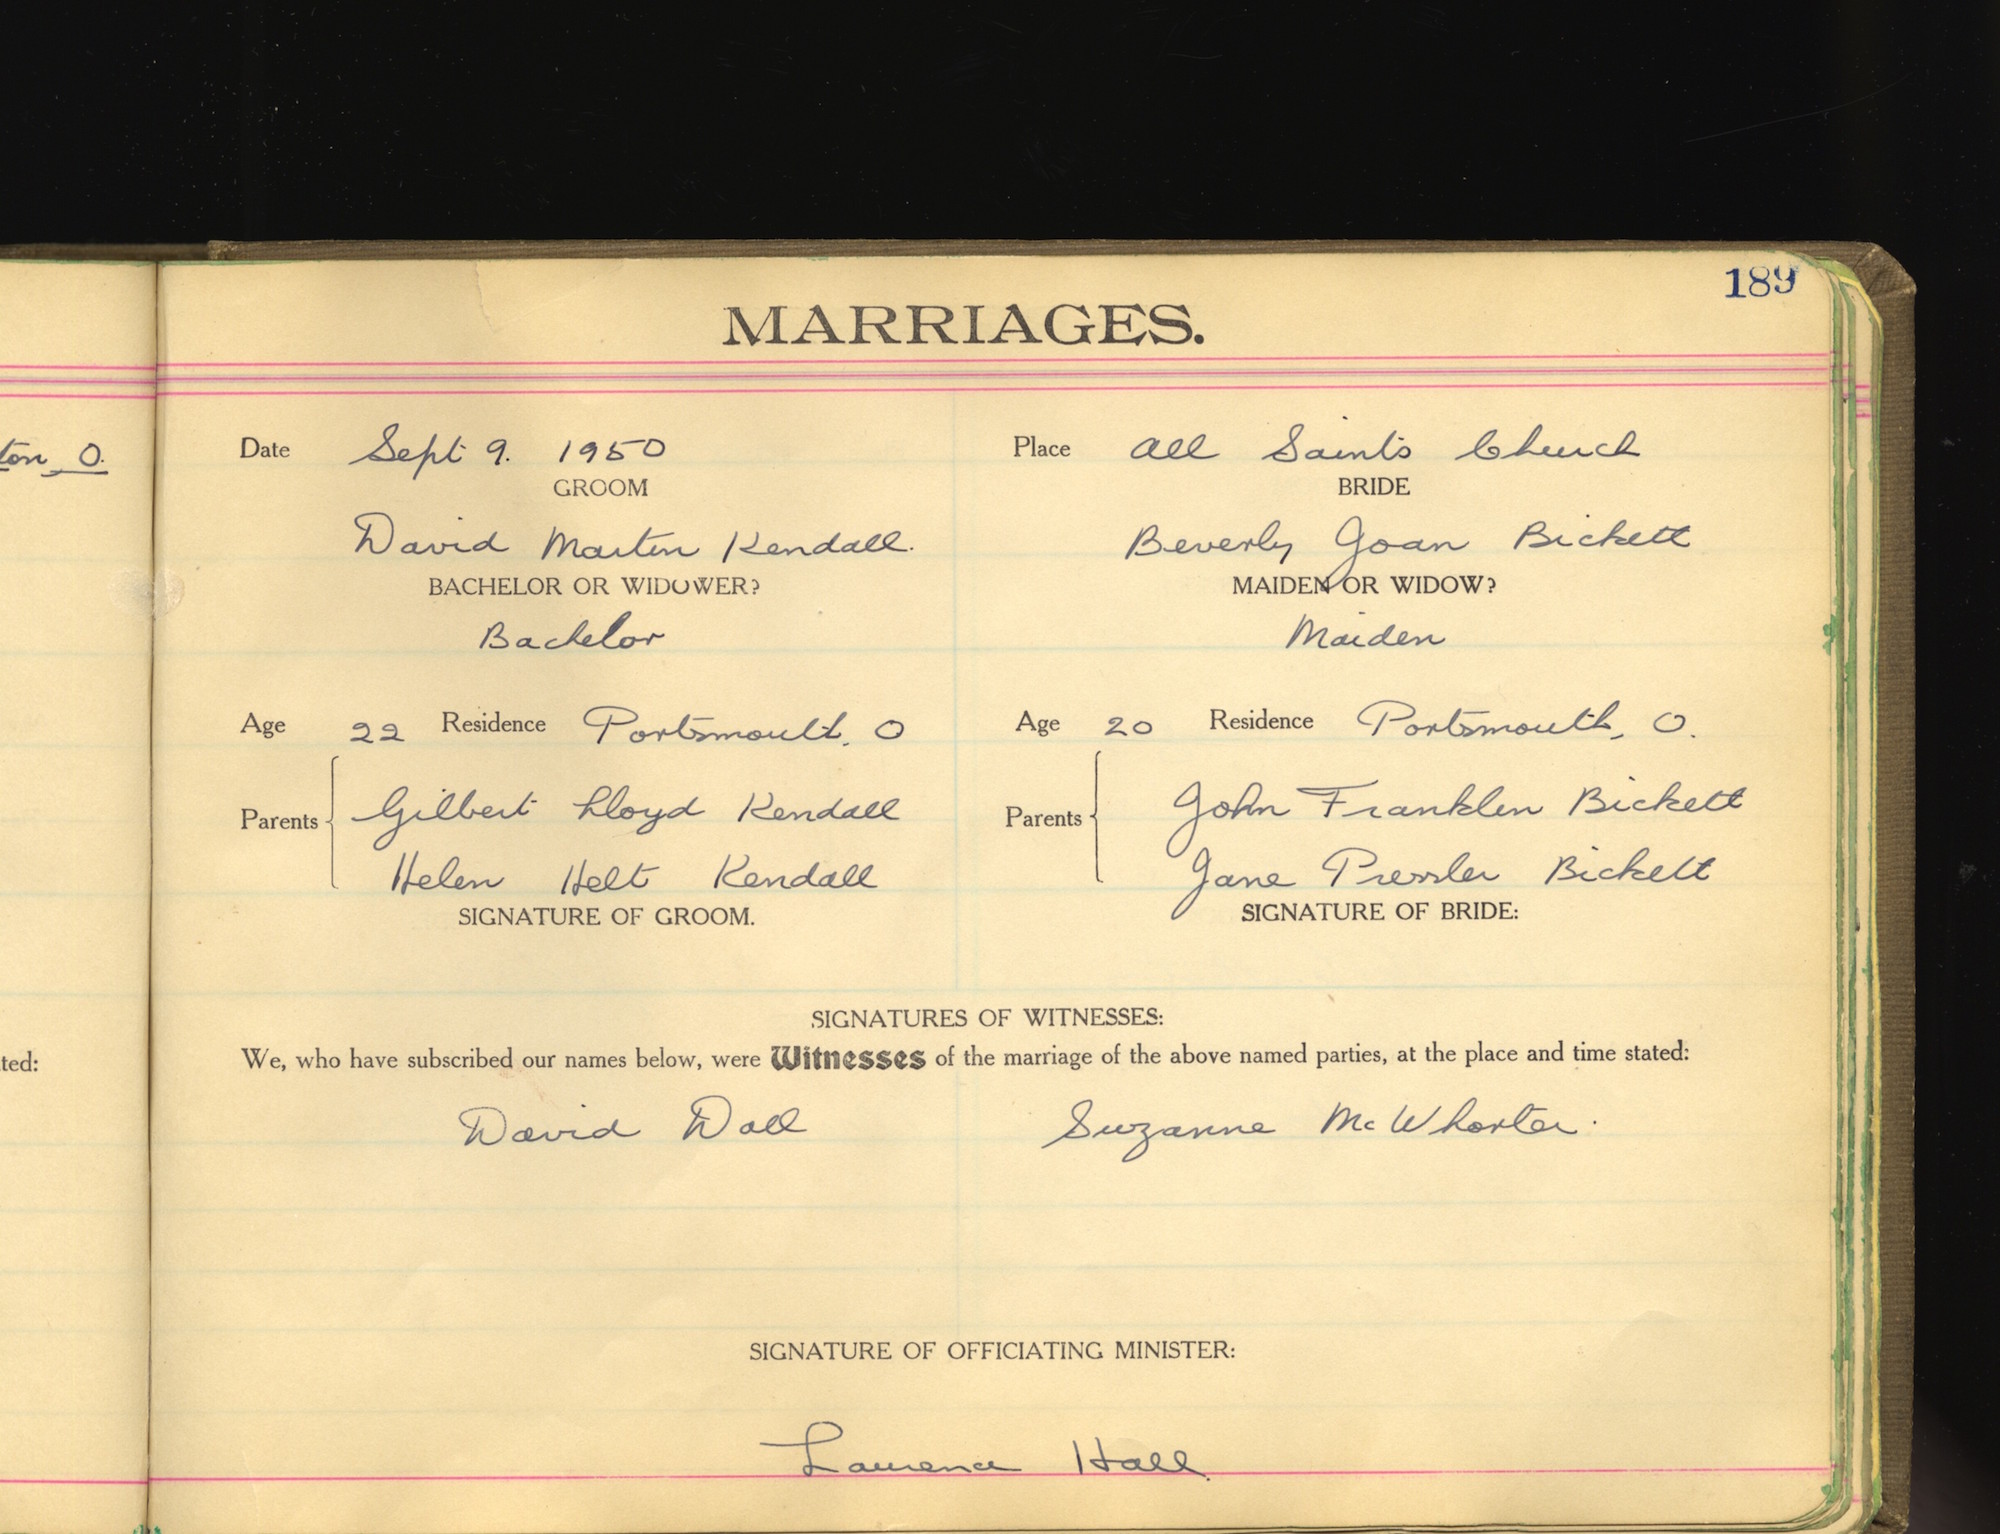 189
MARRIAGES.
ton, O.
Date Sept 9. 1950 Place All Saints Church
GROOM BRIDE
David Martin Kendall. Beverly Joan Bickett
BACHELOR OR WIDOWER? MAIDEN OR WIDOW?
Bachelor Maiden
Age 22 Residence Portsmouth, O Age 20 Residence Portsmouth, O.
Parents Gilbert Lloyd Kendall Parents John Franklin Bickett
Helen Helt Kendall Jane Pressler Bickett
SIGNATURE OF GROOM. SIGNATURE OF BRIDE:
SIGNATURES OF WITNESSES:
ted: We, who have subscribed our names below, were Witnesses of the marriage of the above named parties, at the place and time stated:
David Doll Suzanne McWhorter.
SIGNATURE OF OFFICIATING MINISTER:
Laurence Hall